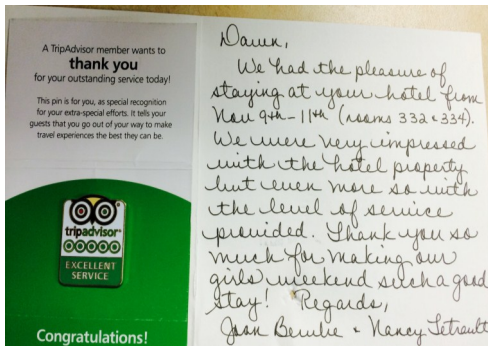 A TripAdvisor member wants to
thank you
for your outstanding service today!
This pin is for you, as special recognition
for your extra-special efforts. It tells your
guests that you go out of your way to make
travel experiences the best they can be.
tripadvisor®
EXCELLENT
SERVICE
Congratulations!
Dawn,
We had the pleasure of
staying at your hotel from
Nov 9th - 11th (rooms 332 & 334).
We were very impressed
with the hotel property
but even more so with
the level of service
provided. Thank you so
much for making our
girls weekend such a good
stay! Regards,
Joan & Nancy Tetrault